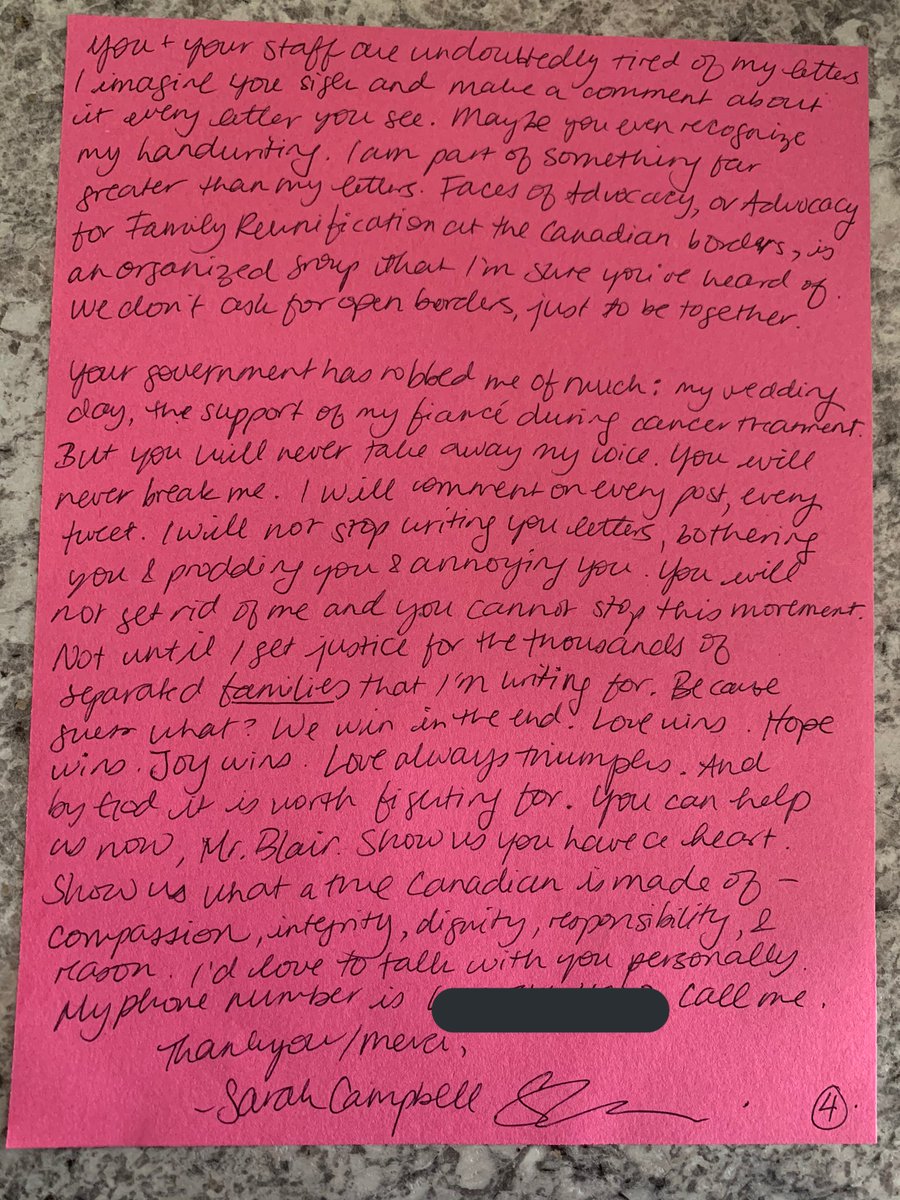 you + your staff are undoubtedly tired of my letters
I imagine you sigh and make a comment about
it every letter you see. Maybe you even recognize
my handwriting. I am part of something far
greater than my letters. Faces of Advocacy, or Advocacy
for Family Reunification at the Canadian borders, is
an organized group that I'm sure you've heard of.
We don't ask for open borders, just to be together.
Your government has robbed me of much: my wedding
day, the support of my fiancé during cancer treatment.
But you will never take away my voice. You will
never break me. I will comment on every post, every
tweet. I will not stop writing you letters, bothering
you & prodding you & annoying you. You will
not get rid of me and you cannot stop this movement.
Not until I get justice for the thousands of
separated families that I'm writing for. Because
guess what? We win in the end. Love wins. Hope
wins. Joy wins. Love always triumphs. And
by God it is worth fighting for. You can help
us now, Mr. Blair. Show us you have a heart.
Show us what a true Canadian is made of -
compassion, integrity, dignity, responsibility, &
reason. I'd love to talk with you personally.
My phone number is call me.
Thank you/merci,
- Sarah Campbell
4